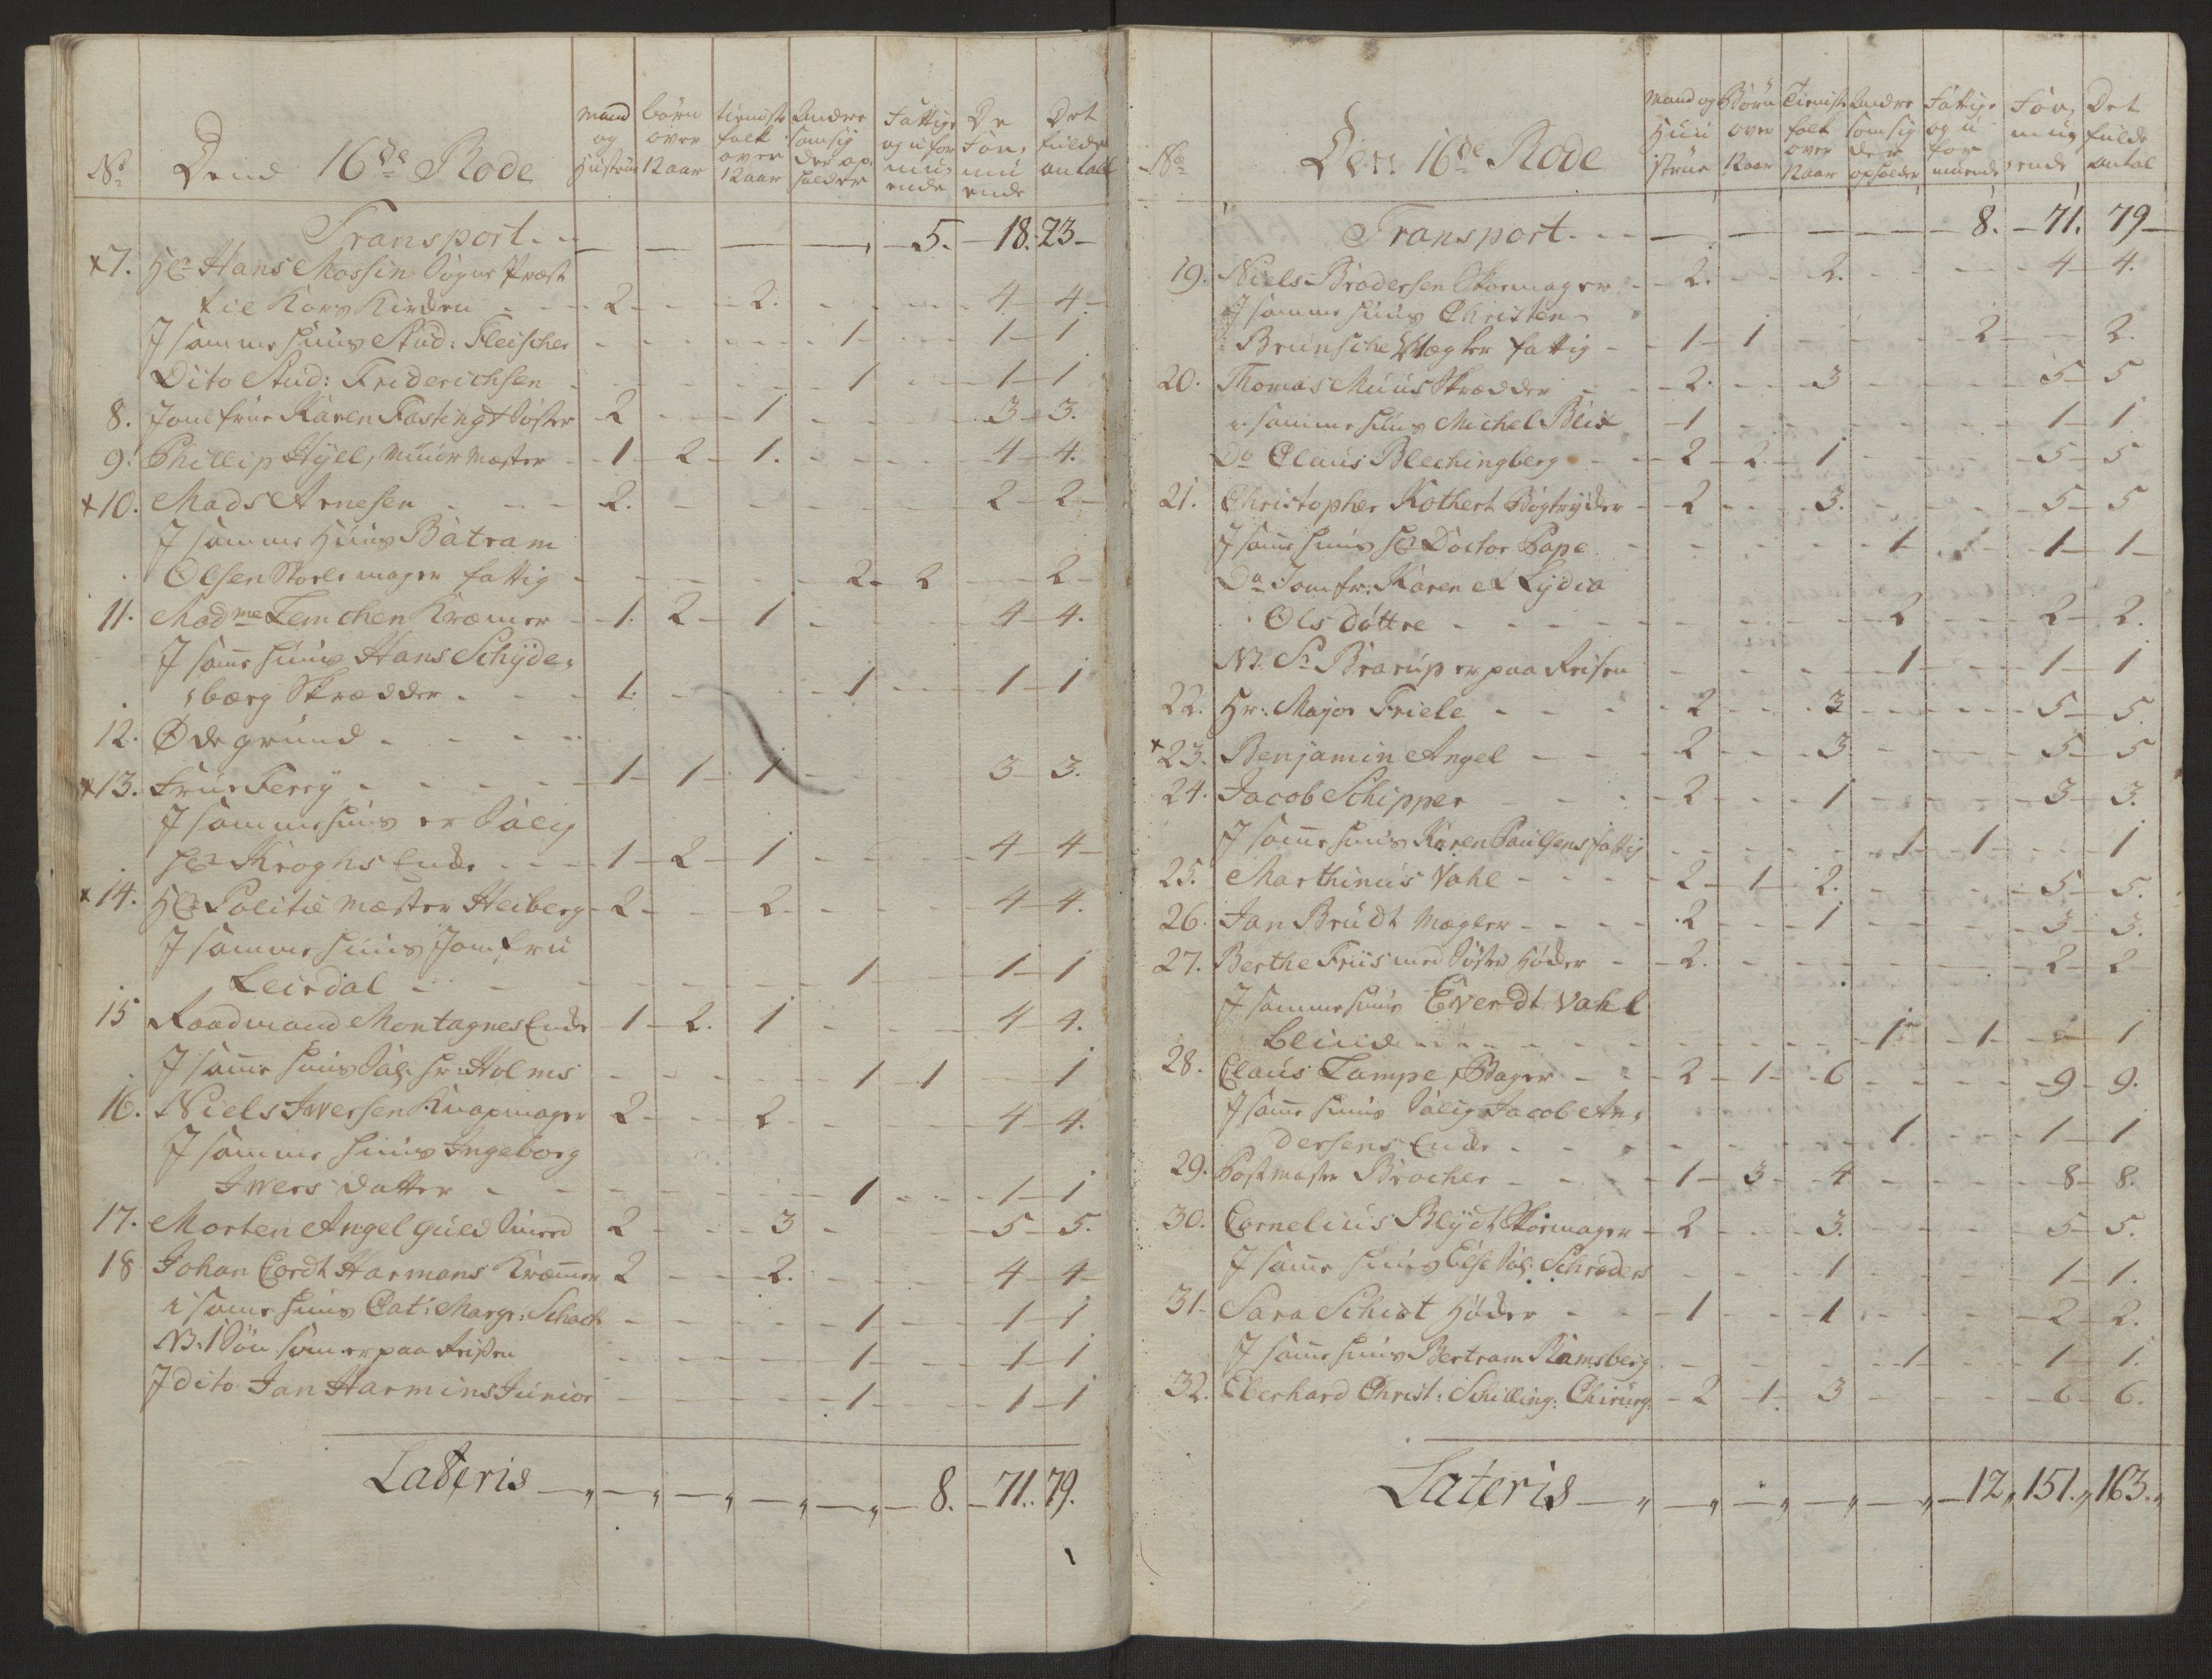 No Dend 16de Rode mand og Hustrue børn over 12 aar tienniste folk over 12 aar Andre som sig der op holder Fattige og u for mu ende De For mu ende Det fulde antall
Transport - - 5. - 18. 23 -
x 7. Hr Hans Mossin Sogne Præst
til Kors Kirken - 2 - - 2. - - 4 - 4 -
J samme huus Stud: Fleischer - - - 1 - - 1 - 1
Dito Stud: Friderichsen - - - 1 - - 1 - 1
8. Jomfrue Karen Fasting & Søster 2 - - 1 - - 3 - 3.
9. Phillip Hyll, Muur Mester - 1 - 2 - 1. - - 4 - 4.
x 10. Mads Arnesen - - - 2. - - - 2 - 2 -
J samme Huus Batram
Olsen Stoelemager fattig - - - 2 - 2 - - 2 -
11. Madme Lemchen Kræmer - 1. 2 - 1 - - 4 - 4.
J samme huus Hans Schyde,
,bærg Skrædder - - - 1. - - 1 - - 1 - 1
12. Ødegrund - - - -
x 13. Frue Ferry - - - - 1 - 1 - 1 - - 3 - 3.
J samme huus er Salig
Hr Kroghs Enke - - - 1 - 2 - 1 - - 4 - 4 -
x 14. Hr Politie Mæster Heiberg - 2 - - 2 - - 4 - 4.
J samme huus Jomfru
Leirdal - - - - 1 - - 1 - 1
15 Raadmand Montagnes Enke - 1 - 2. 1 - - 4 - 4.
J samme huus Sal. Hr: Holms - - - 1 - 1 - - 1
16. Niels Iversen Knapmager 2 - - 2 - - 4 - 4.
J samme huus Ingeborg
Ivers datter - - - 1 - - 1 - 1
17. Morten Angel Guld Smed 2 - - 3 - - 5 - 5.
18 Johan Cordt Harmans Kræmmer 2 - - 2. - - 4 - 4 -
i samme huus Cat: Margr: Schach - - - 1 - - 1 - 1
NB. 1 Søn som er paa Reisen - - - 1 - - 1 - 1
J dito Jan Harmins Junior - - - 1 - - 1 - 1
Lateris - - - - - 8. - 71. 79.
No Den 16de Rode Mand og Huustrue Børn over 12 aar Tienist folk over 12 aar Andre som sig der opholder Fattige og u for muende For mu ende Det fulde Antal
Transport - - - 8. - 71. 79 -
19. Niels Brodersen Skoemager - 2. - - 2. - - 4 - 4.
J samme huus Christen
Brunsche Mægler fattig - 1 - 1 - - 2 - - 2.
20. Thomas Muus Skrædder - 2. - - 3 - - 5 - 5
i samme huus Michel Blix - 1 - - - 1 - 1
Do Claus Blechingberg - - 2 - 2. - 1 - - 5 - 5
21. Christopher Kothert Bogtrykker - 2 - - 3. - - 5 - 5
J samme huus Hr Doctor Pape - - - 1 - - 1 - 1 -
Do Jomfr: Karen & Lydia
Ols døttre - - - - 2 - - 2 - 2.
NB. Sr Brarup er paa Reisen - - - 1 - - 1 - 1
22. Hr: Major Friele - - - 2 - - 3 - - 5 - 5.
x 23. Benjamin Angel - - - 2 - - 3. - - 5 - 5
24. Jacob Schipper - - - 2 - - 1 - - 3 - 3.
J samme huus Karen Paulsens fattig - - - 1 - 1 - - 1
25. Marthinus Vahl - - - 2 - 1 - 2. - - 5 - 5.
26. Jan Brudt Mægler - - - 2 - - 1 - - 3 - 3.
27. Berthe Friis med Søster, Høker - 2. - - - 2 - 2 -
J samme huus Everdt Vahl
blind - - - - 1 - 1 - - 1
28. Claus Lampe, Bager - - 2 - 1 - 6 - - 9 - 9.
J samme huus Salig Jacob An,
dersens Enke - - - - 1 - - 1 - 1
29. Postmester Brocher - - - 1 - 3 - 4 - - 8 - 8.
30. Cornelius Blydt Skoemager - 2 - - 3. - - 5 - 5.
J samme huus Else Sal: Schrøders - - - 1 - - 1 - 1.
31. Sara Schiøt Høker - - 1 - - 1 - - 2 - 2.
J samme huus Bertram Ramsberg - - - 1 - - 1 - 1.
32. Eberhard Christ: Schilling: Chirurg. - 2 - 1. - 3 - - 6 - 6.
Lateris - - - - - 12, 151., 163.,